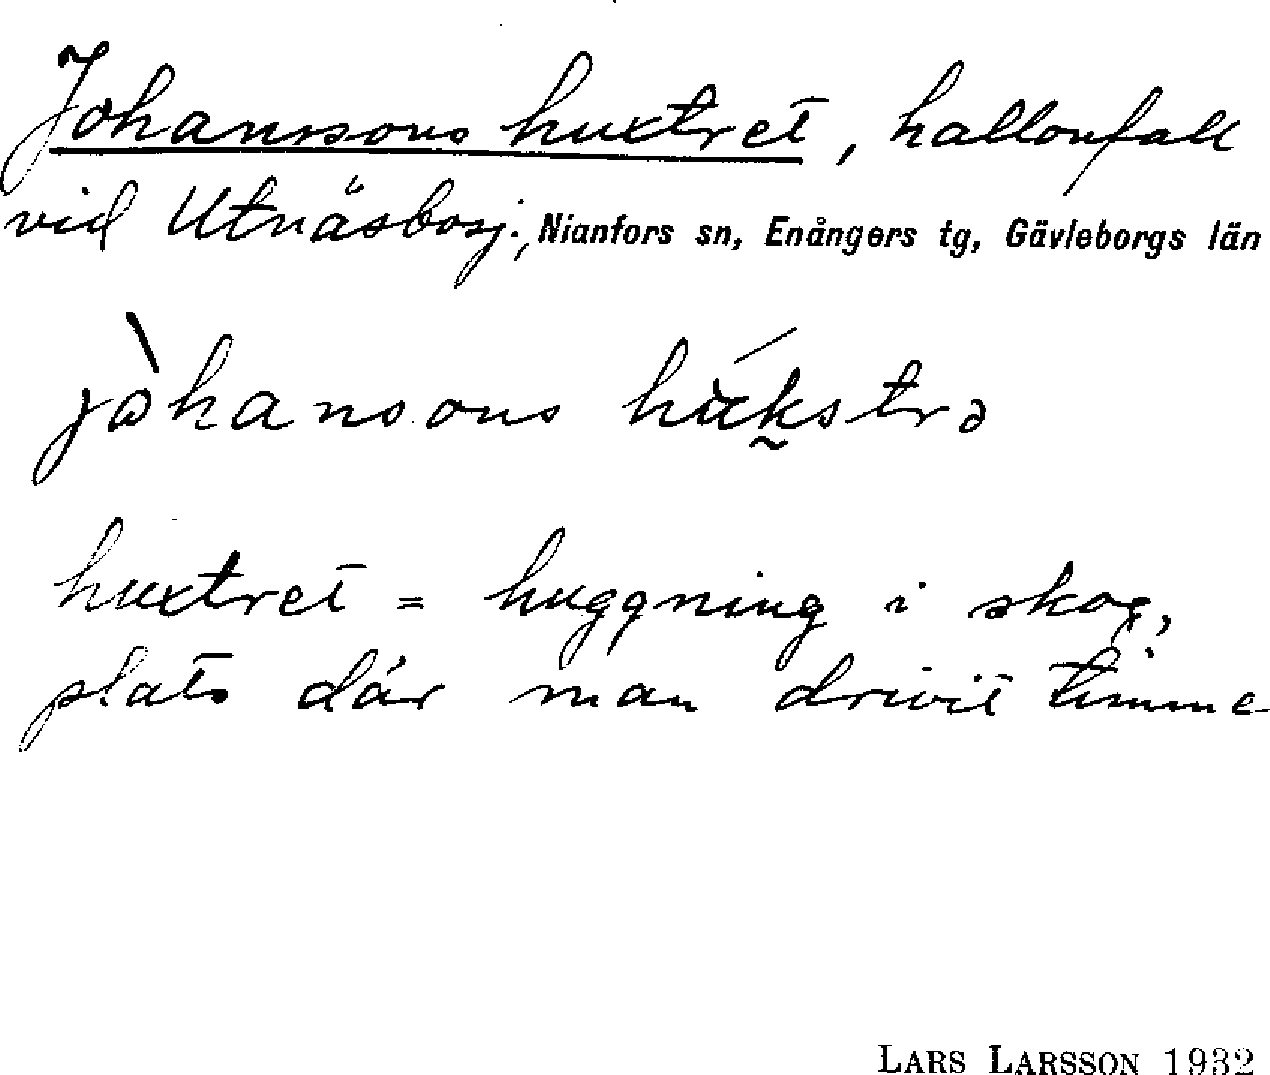 Johanssons huxtret, hallonfall
vid Utnäsbosj., Nianfors sn, Enångers tg, Gävleborgs län
jòhansons húkstrə
huxtret = huggning i skog,
plats där man drivit timme
LARS LARSSON 1932